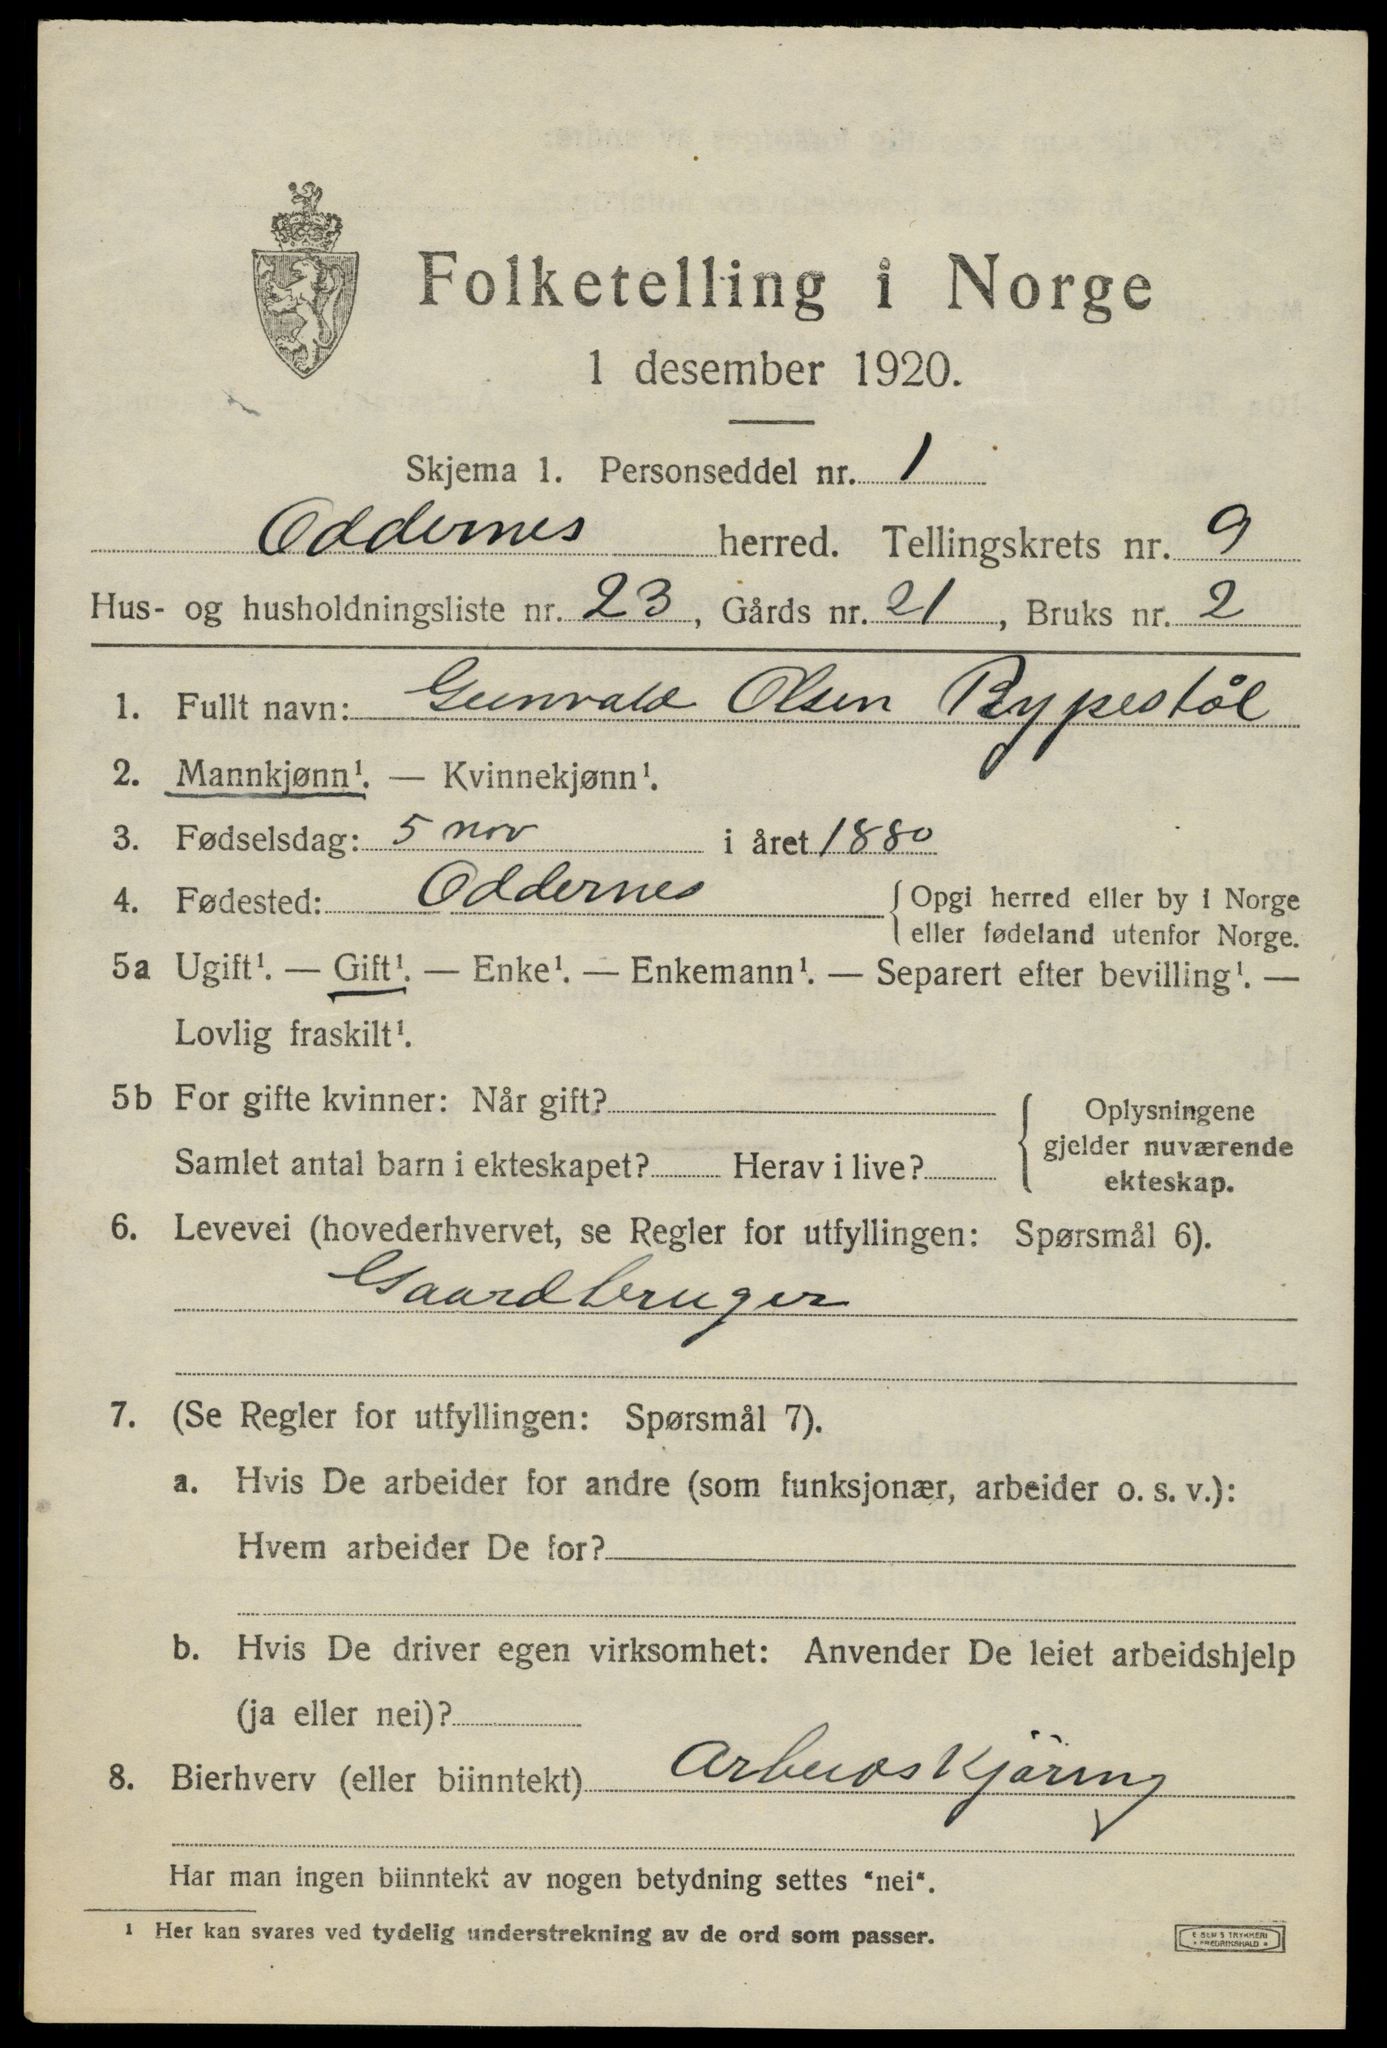 Folketelling i Norge
1 desember 1920.
Skjema 1. Personseddel nr. 1
Oddernes herred. Tellingskrets nr. 9
Hus- og husholdningsliste nr. 23, Gårds nr. 21, Bruks nr. 2
1. Fullt navn: Gunvald Olsen Rypestöl
2. Mannkjønn¹. — Kvinnekjønn¹.
3. Fødselsdag: 5 nov i året 1880
4. Fødested: Oddernes { Opgi herred eller by i Norge
eller fødeland utenfor Norge.
5a Ugift¹. — Gift¹. — Enke¹. — Enkemann¹. — Separert efter bevilling¹. —
Lovlig fraskilt¹.
5b For gifte kvinner: Når gift?
Samlet antal barn i ekteskapet? Herav i live?
{ Oplysningene
gjelder nuværende
ekteskap.
6. Levevei (hovederhvervet, se Regler for utfyllingen: Spørsmål 6).
Gaardbruger
7. (Se Regler for utfyllingen: Spørsmål 7).
a. Hvis De arbeider for andre (som funksjonær, arbeider o. s. v.):
Hvem arbeider De for?
b. Hvis De driver egen virksomhet: Anvender De leiet arbeidshjelp
(ja eller nei)?
8. Bierhverv (eller biinntekt) Arbeidskjöring
Har man ingen biinntekt av nogen betydning settes "nei".
¹ Her kan svares ved tydelig understrekning av de ord som passer.